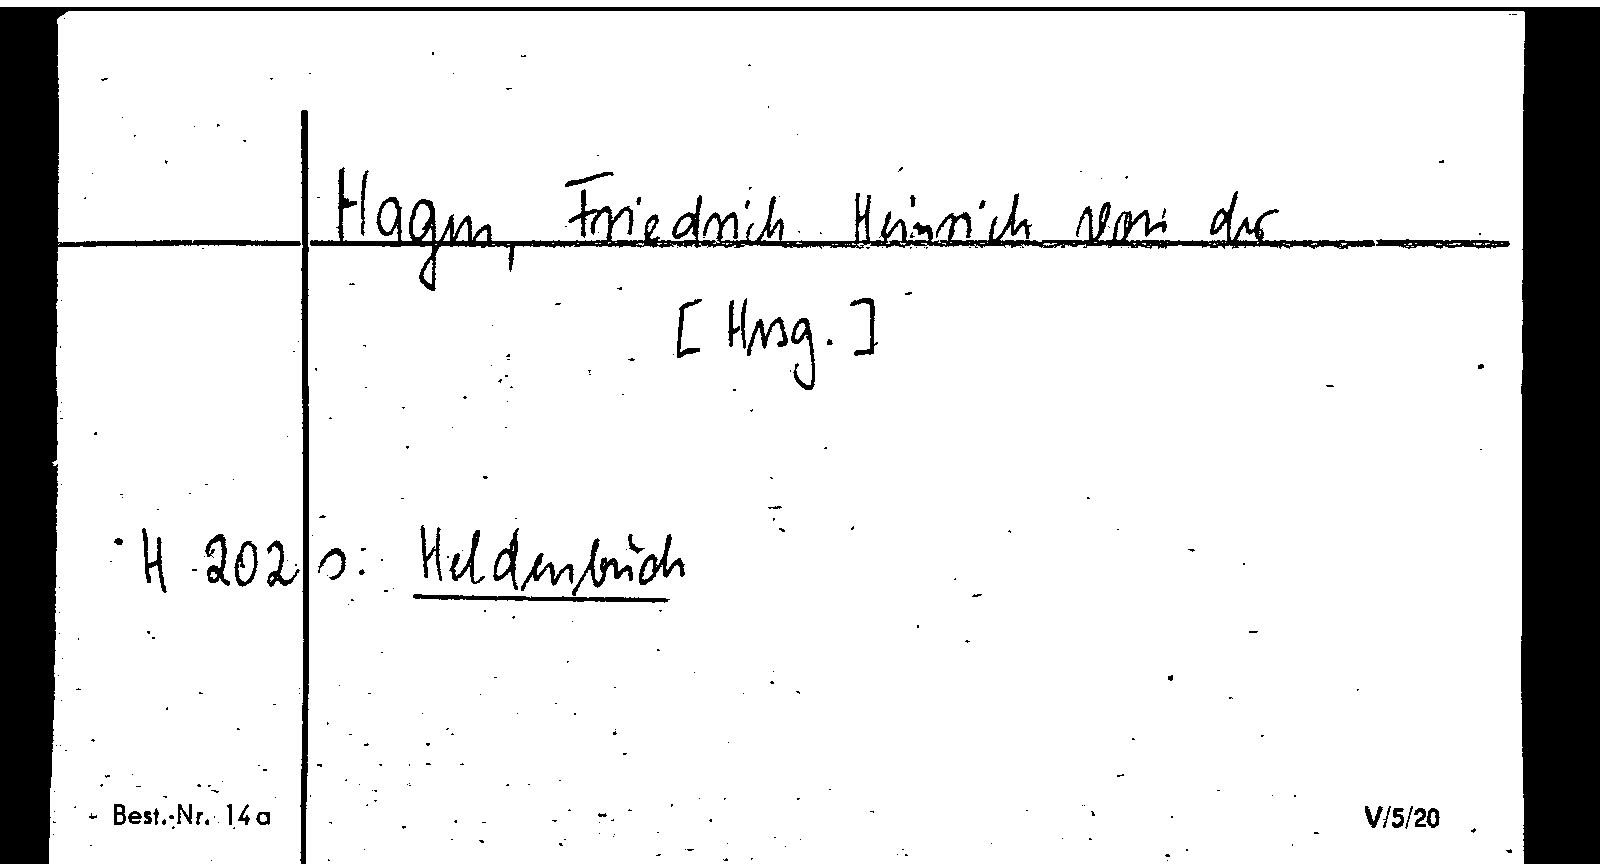 Hagen, Friedrich Heinrich von der
[Hrsg.]
H 202 s: Heldenbuch
Best.-Nr. 14a V/5/20